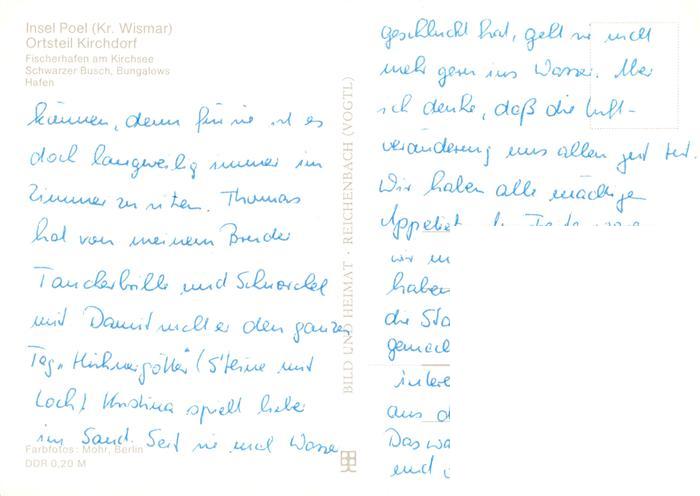 Insel Poel (Kr. Wismar)
Ortsteil Kirchdorf
Fischerhafen am Kirchsee
Schwarzer Busch, Bungalows
Hafen
können, denn für sie ist es
doch langweilig immer im
Zimmer zu sitzen. Thomas
hat von meinem Bruder
Taucherbrille und Schnorchel
und Damit sucht er den ganzen
Tag "Hühnergötter" (Steine mit
Loch) Kristina spielt lieber
im Sand. Seit sie mal Wasser
Farbfotos: Mohr, Berlin
DDR 0,20 M
BILD UND HEIMAT · REICHENBACH (VOGTL)
geschluckt hat, geht sie nicht
mehr gern ins Wasser. Aber
ich denke, daß die Luft-
veränderung uns allen gut tut.
Wir haben alle mächtigen
Appetit
wir
haben
die
gemach
aus
Das
und